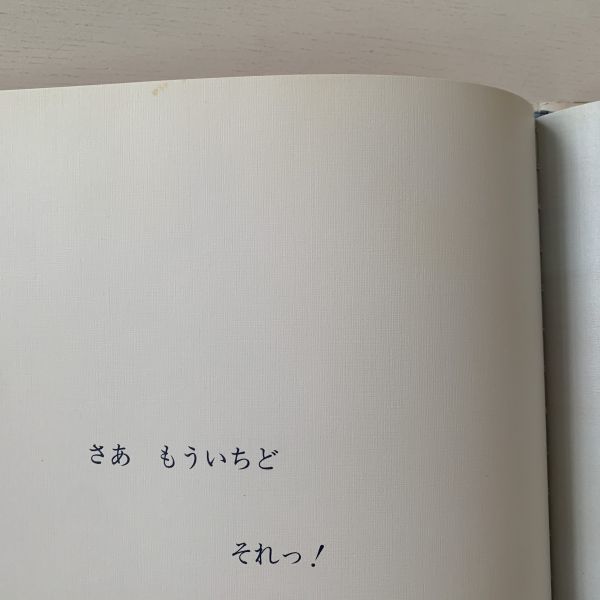 さあ　もういちど
それっ！